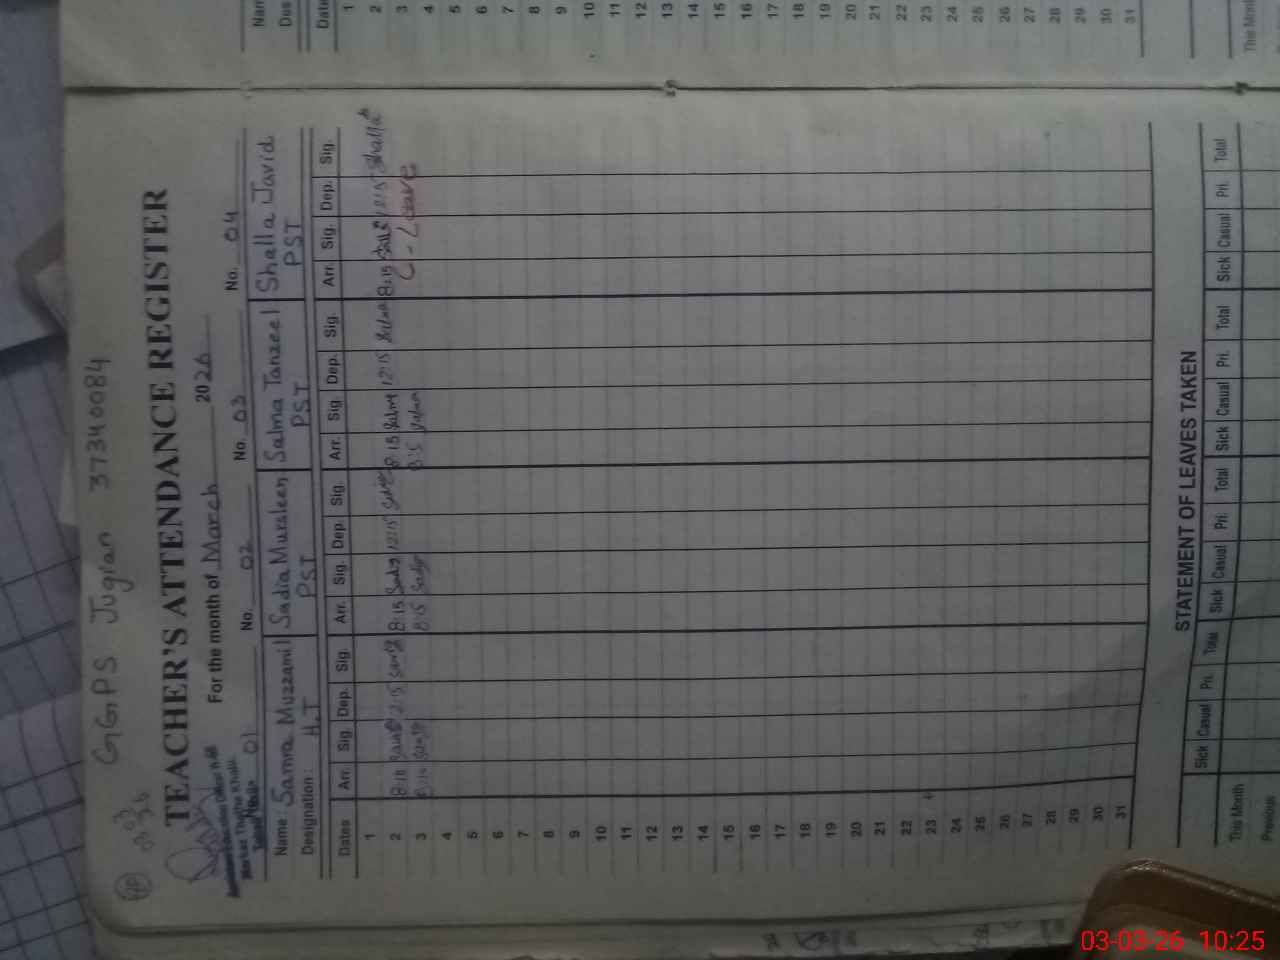 GGPS Jugian 37340084
TEACHER'S ATTENDANCE REGISTER
For the month of March 2026
No. 01 No. 02 No. 03 No. 04
Name: Samra Muzzamil Sadia Mursleen Salma Tanzeel Shalla Javid
Designation: H.T PST PST PST
Dates Arr. Sig. Dep. Sig. Arr. Sig. Dep. Sig. Arr. Sig Dep. Sig. Arr. Sig. Dep. Sig.
1
2 8:10 2:15 8:15 Sadia 12:15 8:15 Salma 12:15 Salma 8:15 12:15 Shalla
3 8:15 8:15 C-Leave
4
5
6
7
8
9
10
11
12
13
14
15
16
17
18
19
20
21
22
23
24
25
26
27
28
29
30
31
STATEMENT OF LEAVES TAKEN
Sick Casual Pri. Total Sick Casual Pri. Total Sick Casual Pri. Total Sick Casual Pri. Total
This Month
Previous
Dates
1
2
3
4
5
6
7
8
9
10
11
12
13
14
15
16
17
18
19
20
21
22
23
24
25
26
27
28
29
30
31
03-03-26 10:25